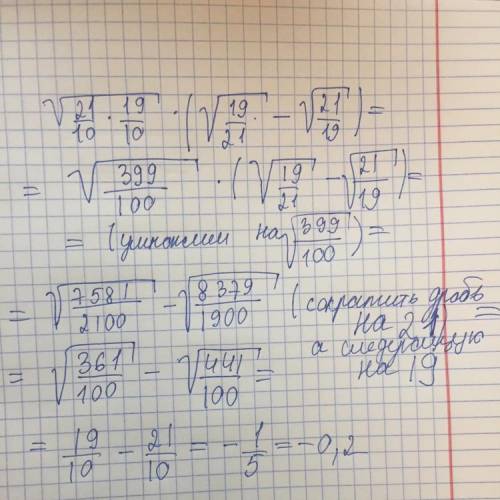 √(21/10 · 19/10) · (√(19/21) − √(21/19)) =
= √(399/100) · (√(19/21) − √(21/19)) =
= (умножим на √(399/100)) =
= √(7581/2100) − √(8379/1900) (сократить дробь на 21, а следующую на 19) =
= √(361/100) − √(441/100) =
= 19/10 − 21/10 = −1/5 = −0,2